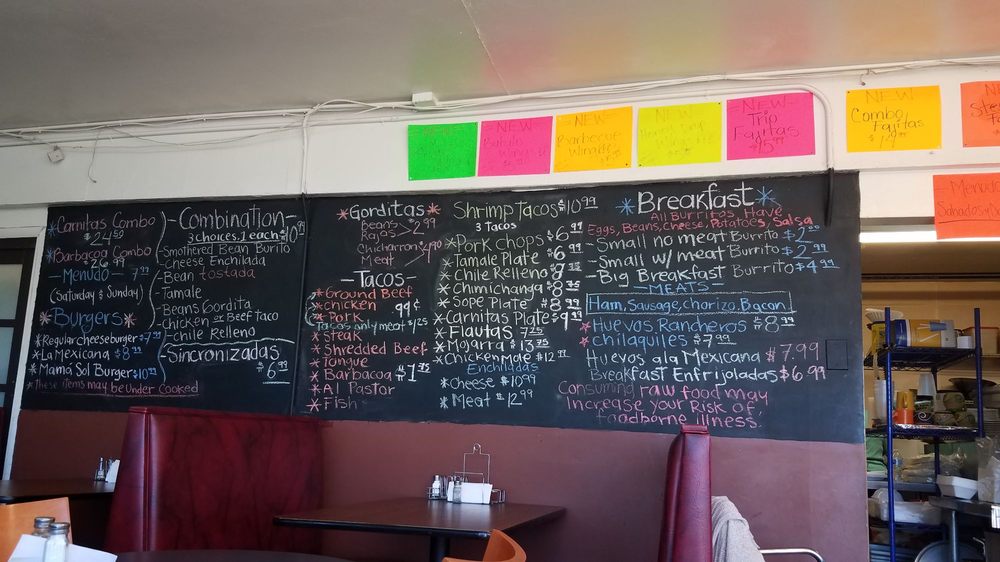 NEW
NEW
Barbecue
NEW
NEW
Trip
Fajitas
NEW
Combo
Fajitas
Menudo
*Carnitas Combo
$24.50
*Barbacoa Combo
$26.99
-Menudo- 7.99
(Saturday & Sunday)
*Burgers*
*Regular cheeseburger
*La Mexicana $8.99
*Mama Sol Burger $10.99
*These items may be Under Cooked
-Combination-
3 choices, 1 each $10.99
-Smothered Bean Burito
-Cheese Enchilada
-Bean tostada
-Tamale
-Beans Gordita
Chicken or Beef taco
-Chile Relleno
-Sincronizadas
$6.99
*Gorditas*
Beans
Rajas
$2.99
Chicharron
Meat
-Tacos-
*Ground Beef
*chicken 99¢
*Pork
Tacos only meat $1.25
*Steak
*Shredded Beef
*Tongue
*Barbacoa $1.75
*Al Pastor
*Fish
Shrimp Tacos $10.99
3 Tacos
*Pork Chops $6.99
*Tamale Plate $6.99
*Chile Relleno
*Chimichanga
*Sope Plate $8.99
*Carnitas Plate $9.99
*Flautas 7.25
*Mojarra $13.75
*Chicken Mole $12.99
Enchiladas
*Cheese $10.99
*Meat $12.99
*Breakfast*
All Burritos Have
Eggs, Beans, Cheese, Potatoes, Salsa
-Small no meat Burrito $2.50
-Small w/ meat Burrito $2.99
-Big Breakfast Burrito $4.99
-MEATS-
Ham, Sausage, Chorizo, Bacon
*Huevos Rancheros $8.99
*chilaquiles $7.99
Huevos ala Mexicana $7.99
Breakfast Enfrijoladas $6.99
Consuming raw food may
Increase your Risk of
foodborne Illness.